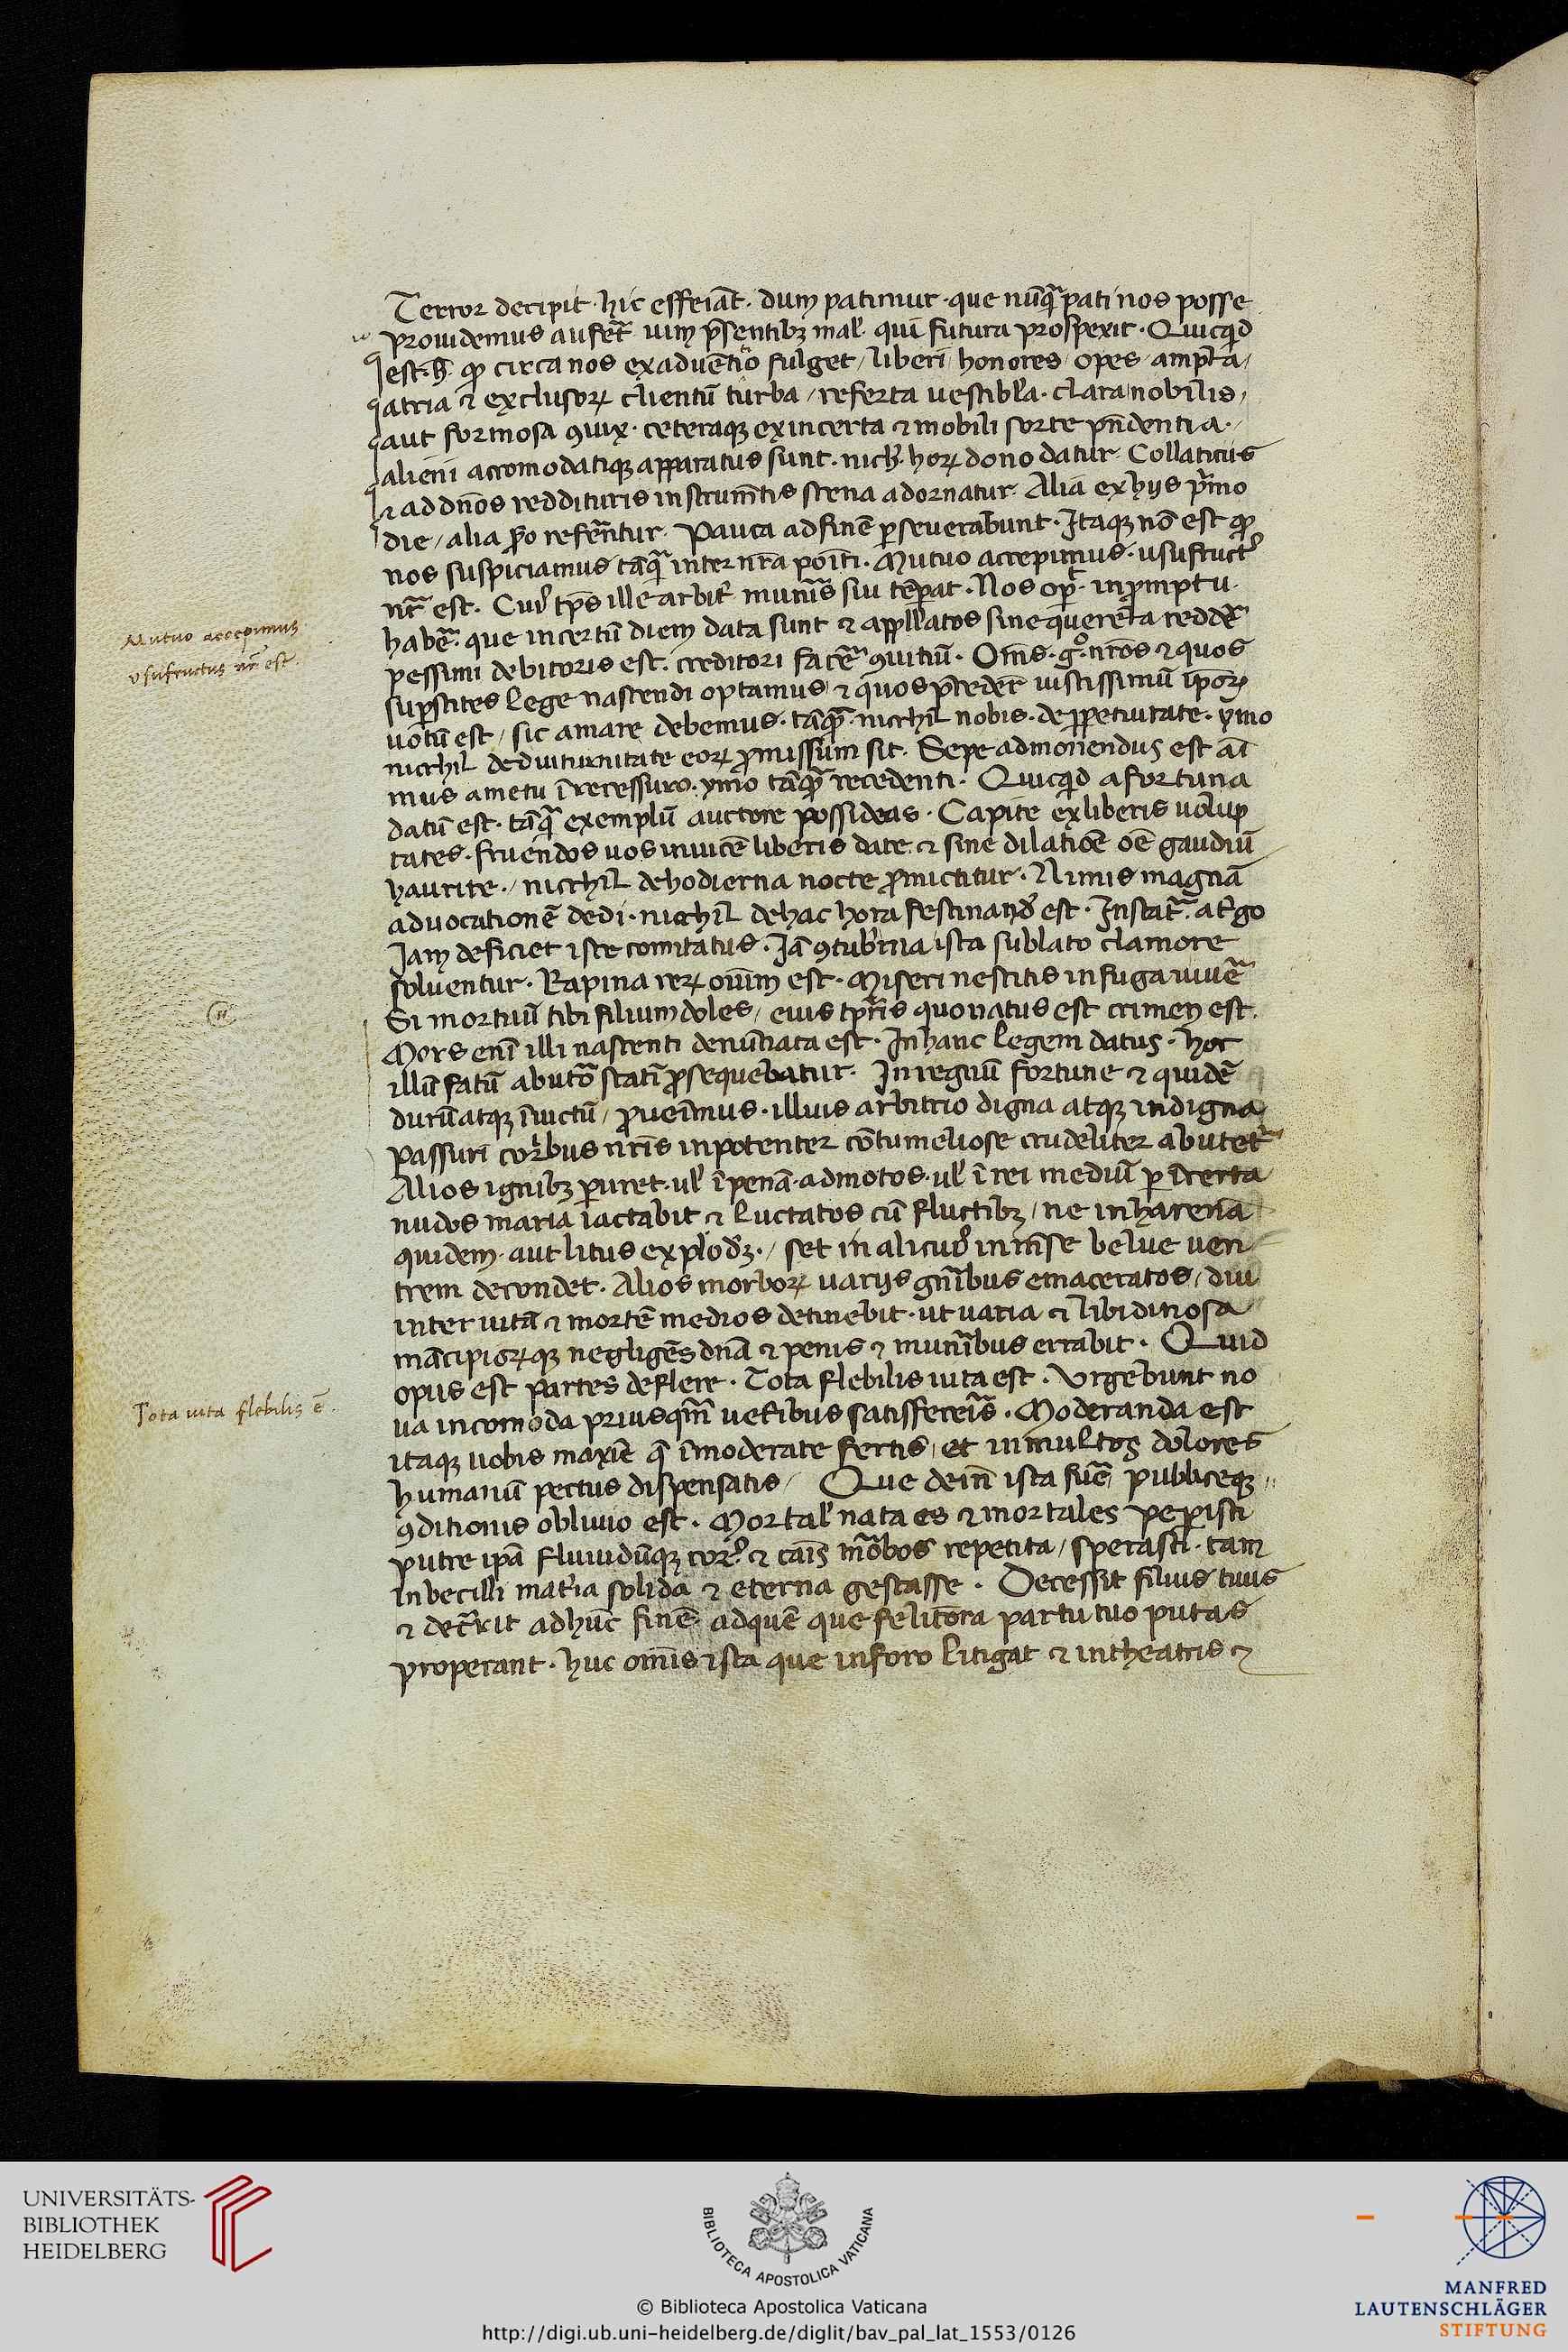 Terror decipit · hic effeiāt · dum patimur · que nūq̄ pati nos posse
prouidemus aufert̄ uim p̄sentibꝫ mał qui futura prospexit · Quicq̄d
est · h̄ · qđ circa nos ex aduētitio fulget / liberi / honores / opes · ampła /
atria ⁊ exclusoꝝ clientū turba / referta uestibła · clara nobilis /
aut formosa ꝯiux · ceteraqꝫ ex incerta ⁊ mobili sorte pn̄dentia ·
alieni accomodatiqꝫ apparatus sunt · nich̄ · hoꝝ dono datur Collaticiis
⁊ ad dn̄os reddituris instrum̄tis scena adornatur · Alia ex hijs p̄mo
die / alia s̄co refern̄tur · Pauca ad finē ꝑseuerabunt · Itaqꝫ nō est qđ
nos suspiciamus tāq̄ inter nr̄a poīti · Mutuo accepimus · usufruct᷒
nr̄ est · Cui᷒ tp̄s ille arbit̄ mun̄is sui tēpat · Nos opt̄ · in ꝓmptu
habē · que incertū diem data sunt ⁊ appłłatos sine quereła reddē
pessimi debitoris est · creditori facē ꝯuitiū · Om̄s · gͦ · nr̄os ⁊ quos
suꝑstites lege nascendi optamus ⁊ quos p̄cedēr iustissimū ip̄oꝝ
uotū est / sic amare debemus · tāq̄ · nicchil nobis · de ꝑpetuitate · ymo
nicchil de diuturnitate eoꝝ ꝓmissum sit · Sepe admonendus est aī
mus ametu ī recessuro · ymo tāq̄ recedenti · Quicq̄d a fortuna
datū est · tāq̄ exemplū auctore possideas · Capite ex liberis uolup
tates · fruendos uos inuicē liberis date · ⁊ sine dilatiōe oē gaudiū
haurite · / nicchil de hodierna nocte ꝓmictitur · Nimis magnā
aduocationē dedi · nicchil de hac hora festinand᷒ est · Instat̄ · at̄go
Iam deficiet iste comitatus · Iā ꝯtub̄nia ista sublato clamore
soluentur · Rapina reꝝ oīum est · Miseri nescitis in fuga uiuē
Si mortuū tibi filium doles / eius tp̄ris quo natus est crimen est ·
Mors enī illi nascenti denūtiata est · In hanc legem datus · hoc
illū fatū ab ut̄o statī ꝓsequebatur · In regnū fortune ⁊ quidē
durū atqꝫ īuictū / ꝓueīmus · illius arbitrio digna atqꝫ indigna
passuri corꝑbus nr̄is inpotenter cōtumeliose crudeliter abutet̄
Alios ignibꝫ ꝑuret · uł ī penā · admotos · uł ī rei mediū ꝑ īcerta
nudos maria iactabit ⁊ luctatos cū fluctibꝫ / ne in harenā
quidem · aut litus explodꝫ · / set in alicui᷒ inm̄se belue uen
trem decondet · Alios morboꝝ uarijs gn̄ibus emaceratos / diu
inter uitā ⁊ mortē medios detinebit · ut uaria ⁊ libidinosa
mācipioꝝqꝫ negligēs dn̄a ⁊ penis ⁊ mun̄ibus errabit · Quid
opus est partes deflere · Tota flebilis uita est · Urgebunt no
ua incomoda priusqm̄ uet̄ibus satisfecēis · Moderanda est
itaqꝫ uobis maxīe q̄ īmoderate fertis / et in multos dolores
humanū pectus dispensatis / Que dein̄ ista suē publiceqꝫ
ꝯditionis obliuio est · Mortał nata es ⁊ mortales peperisti
putre ip̄a fluuidūqꝫ corꝑ ⁊ caīs morbos repetita / sperasti · tam
inbecilli mat̄ia solida ⁊ eterna gestasse · Decessit filius tuus
⁊ decr̄rit ad hūc finē ad quē que feliciora partu tuo putas
properant · huc om̄is ista que in foro litigat ⁊ in theatris ⁊
Mutuo accepimus
vsufructus nr̄ est ·
Tota uita flebilis ē ·
UNIVERSITÄTS-
BIBLIOTHEK
HEIDELBERG
BIBLIOTECA APOSTOLICA VATICANA
© Biblioteca Apostolica Vaticana
http://digi.ub.uni-heidelberg.de/diglit/bav_pal_lat_1553/0126
MANFRED
LAUTENSCHLÄGER
STIFTUNG